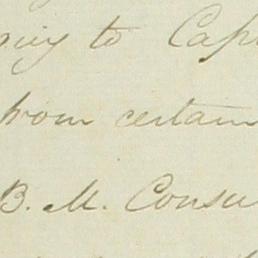 to Cap
from certain
B. M. Consu